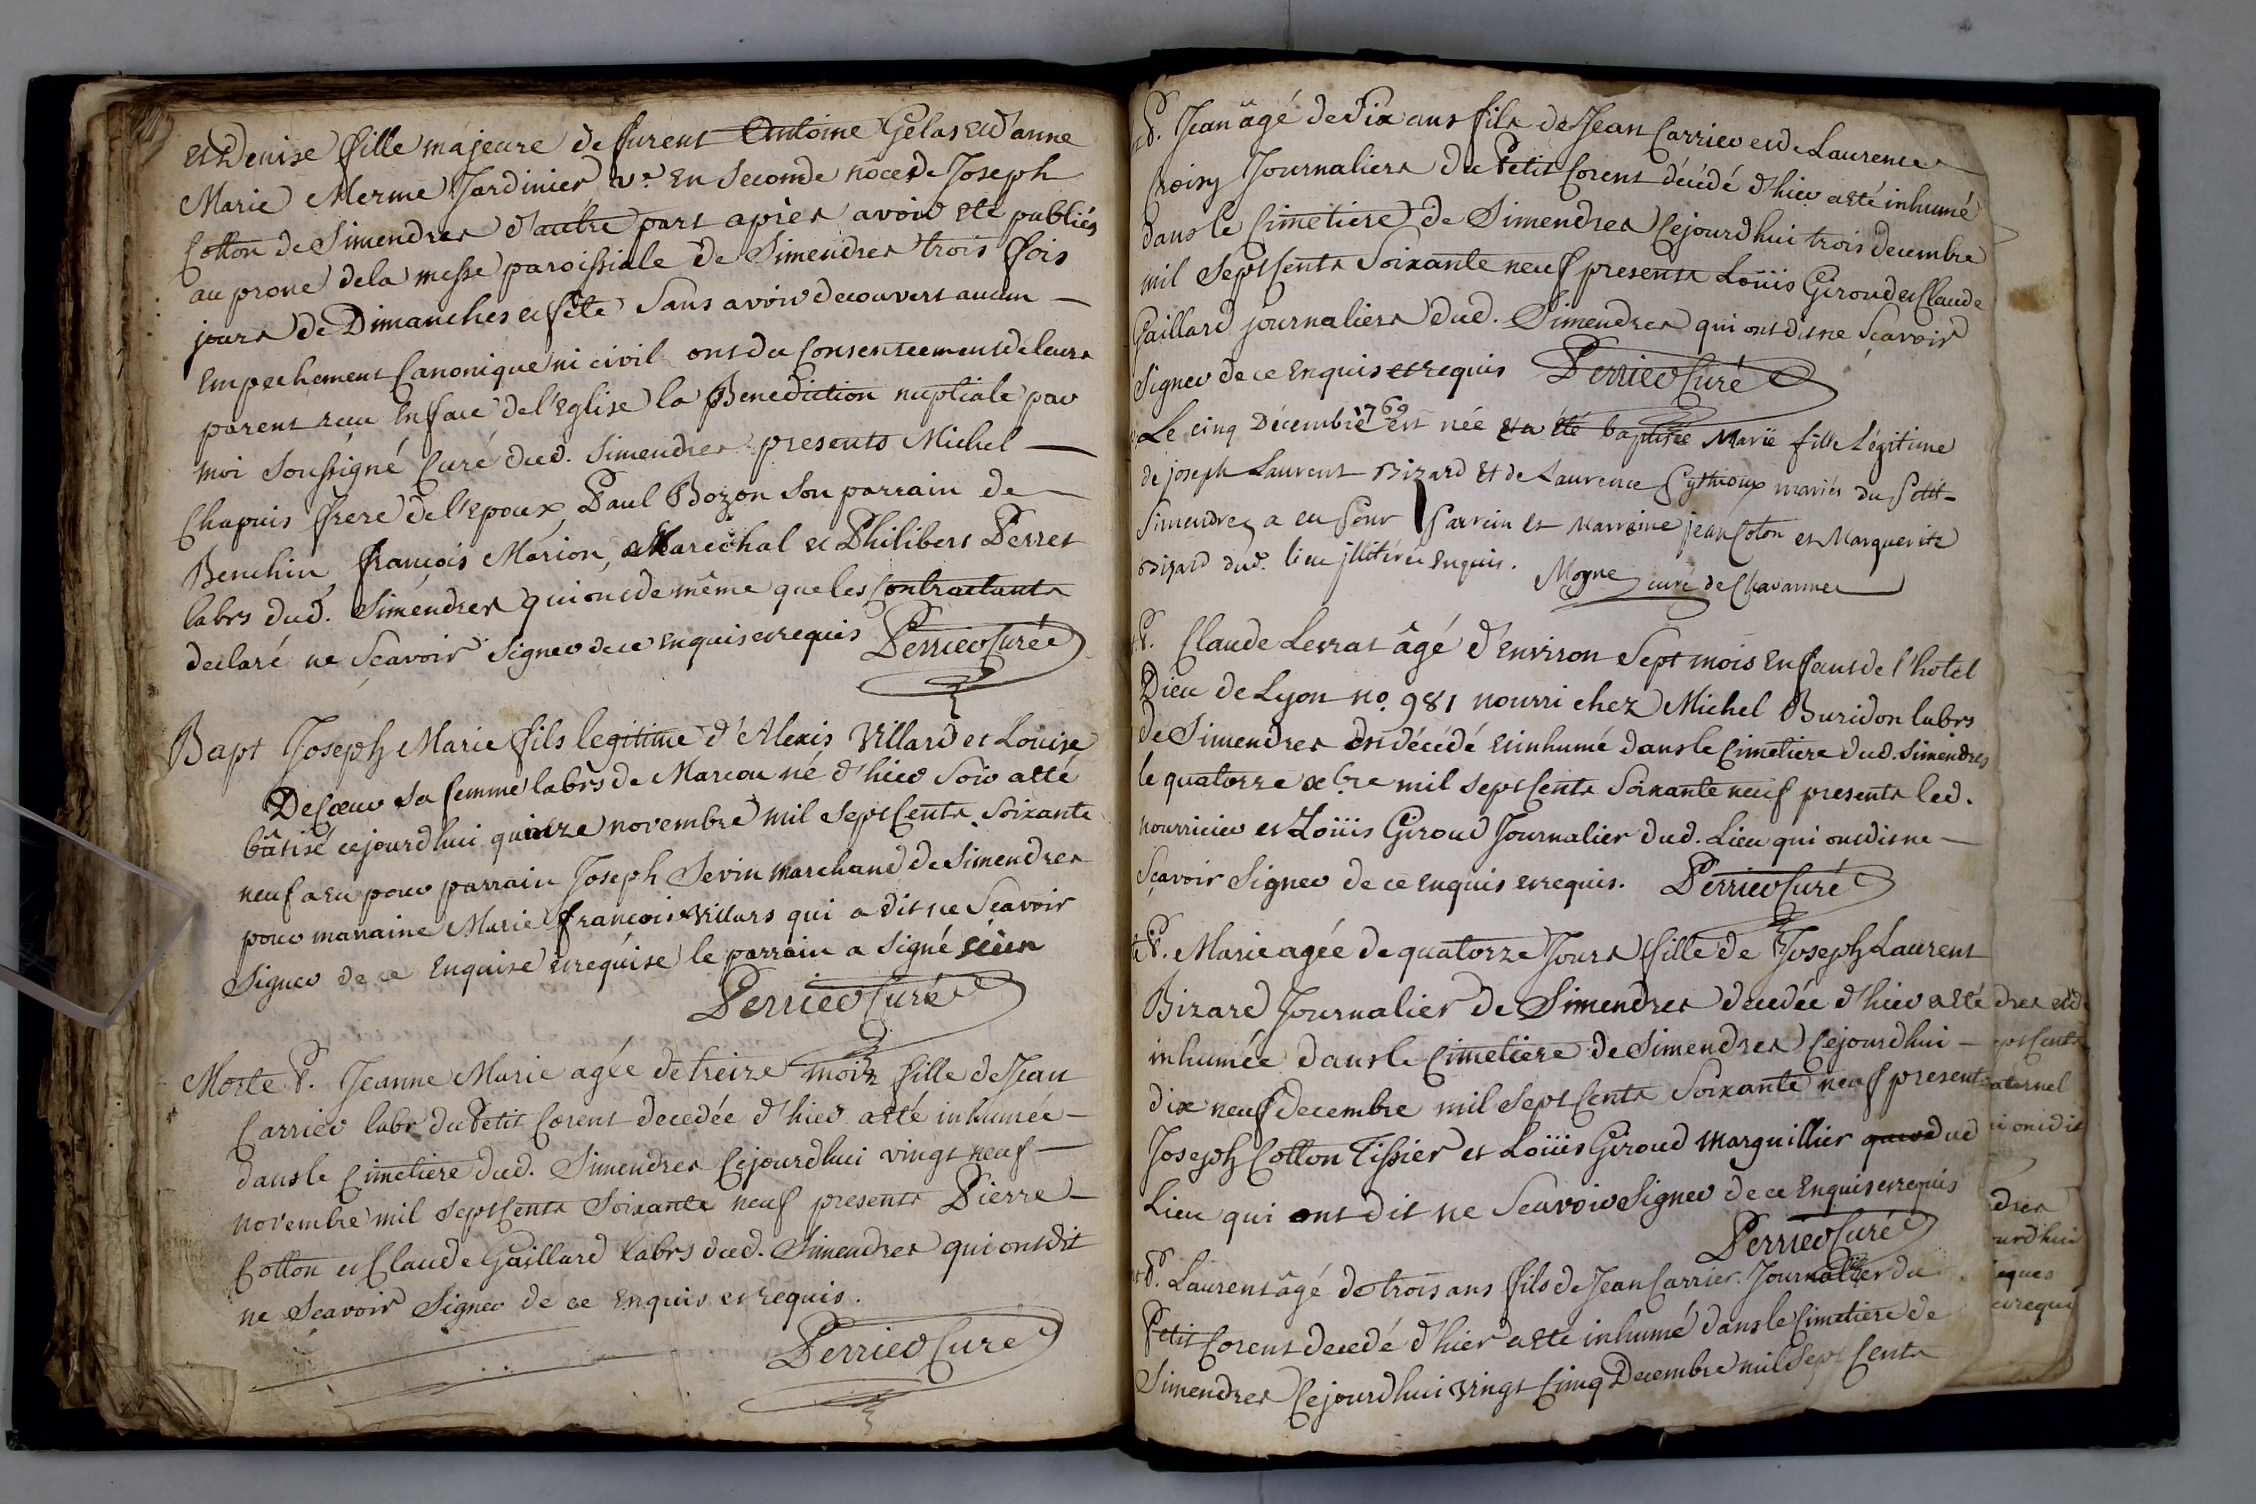 et Denise fille majeure de furent Antoine Gelas et d'anne
Marie Merme Jardinier v.e en seconde noces de Joseph
Cotton de Simendres d'autre part après avoir eté publiés
au prone de la messe paroissiale de Simendres trois fois
jours de Dimanches et fête sans avoir decouvert aucun
Empechement Canonique ni civil ont du Consenteement de leurs
parent recu en face de l'Eglise la Benediction nuptiale par
moi soussigné Curé dud. Simendres presents Michel
Chapuis frere de l'epoux, Paul Bozon son parrain de
Benchin, françois Marion, Marechal et Philibert Perret
labrs dud. Simendres qui ont de même que les Contractants
declaré ne sçavoir signer de ce enquis et requis Perrier Curé
Bapt Joseph Marie fils legitime d'Alexis Villard et Louise
DeCœur sa femme labrs de Marcou né d'hier soir a eté
bâtisé cejourdhui quinze novembre mil sept Cents soixante
neuf a eu pour parrain Joseph Sevin marchand de Simendres
pour maraine Marie françoise Villars qui a dit ne scavoir
signer de ce enquise et requise le parrain a signé
Perrier Curé
Morte P. Jeanne Marie agée de treize mois fille de Jean
Carrier labr du Petit Corent decedée d'hier a eté inhumée
dans le Cimetiere dud. Simendres Cejourdhui vingt neuf
novembre mil sept Cents soixante neuf presents Pierre
Cotton et Claude Gaillard labrs dud. Simendres qui ont dit
ne scavoir signer de ce enquis et requis.
Perrier Curé
P. Jean âgé de dix ans fils de Jean Carrier et de Laurence
Croisy Journaliers du Petit Corent décédé d'hier a eté inhumé
dans le Cimetiere de Simendres Cejourdhui trois decembre
mil sept Cents soixante neuf presents Loüis Giroud et Claude
Gaillard journaliers dud. Simendres qui ont dit ne sçavoir
signer de ce enquis et requis Perrier Curé
Le cinq Décembre 1769 est née et a été baptisée Marie fille légitime
de joseph Laurent Bizard et de Laurence mariés du Petit
Simendres a eu pour parrein et marreine jean Coton et Marguerite
Bizard dud. lieu illitérés enquis. Moyne curé de Chavannes
P. Claude Levrat âgé d'environ sept mois enfant de l'hotel
Dieu de Lyon no. 981 nourri chez Michel Buridon labrs
de Simendres est décédé et inhumé dans le Cimetiere dud. Simendres
le quatorze xbre mil sept Cents soixante neuf presents led.
nourricier et Loüis Giroud Journalier dud. Lieu qui ont dit ne
sçavoir signer de ce enquis et requis. Perrier Curé
P. Marie agée de quatorze Jours fille de Joseph Laurent
Bizard Journalier de Simendres decedée d'hier a eté
inhumée dans le Cimetiere de Simendres Cejourdhui
dix neuf decembre mil sept Cents soixante neuf present
Joseph Cotton Tissier et Loüis Giroud marguillier dud
Lieu qui ont dit ne scavoir signer de ce enquis et requis
Perrier Curé
P. Laurent âgé de trois ans fils de Jean Carrier Journalier du
Petit Corent decedé d'hier a eté inhumé dans le Cimetiere de
Simendres Cejourdhui vingt Cinq Decembre mil sept Cents